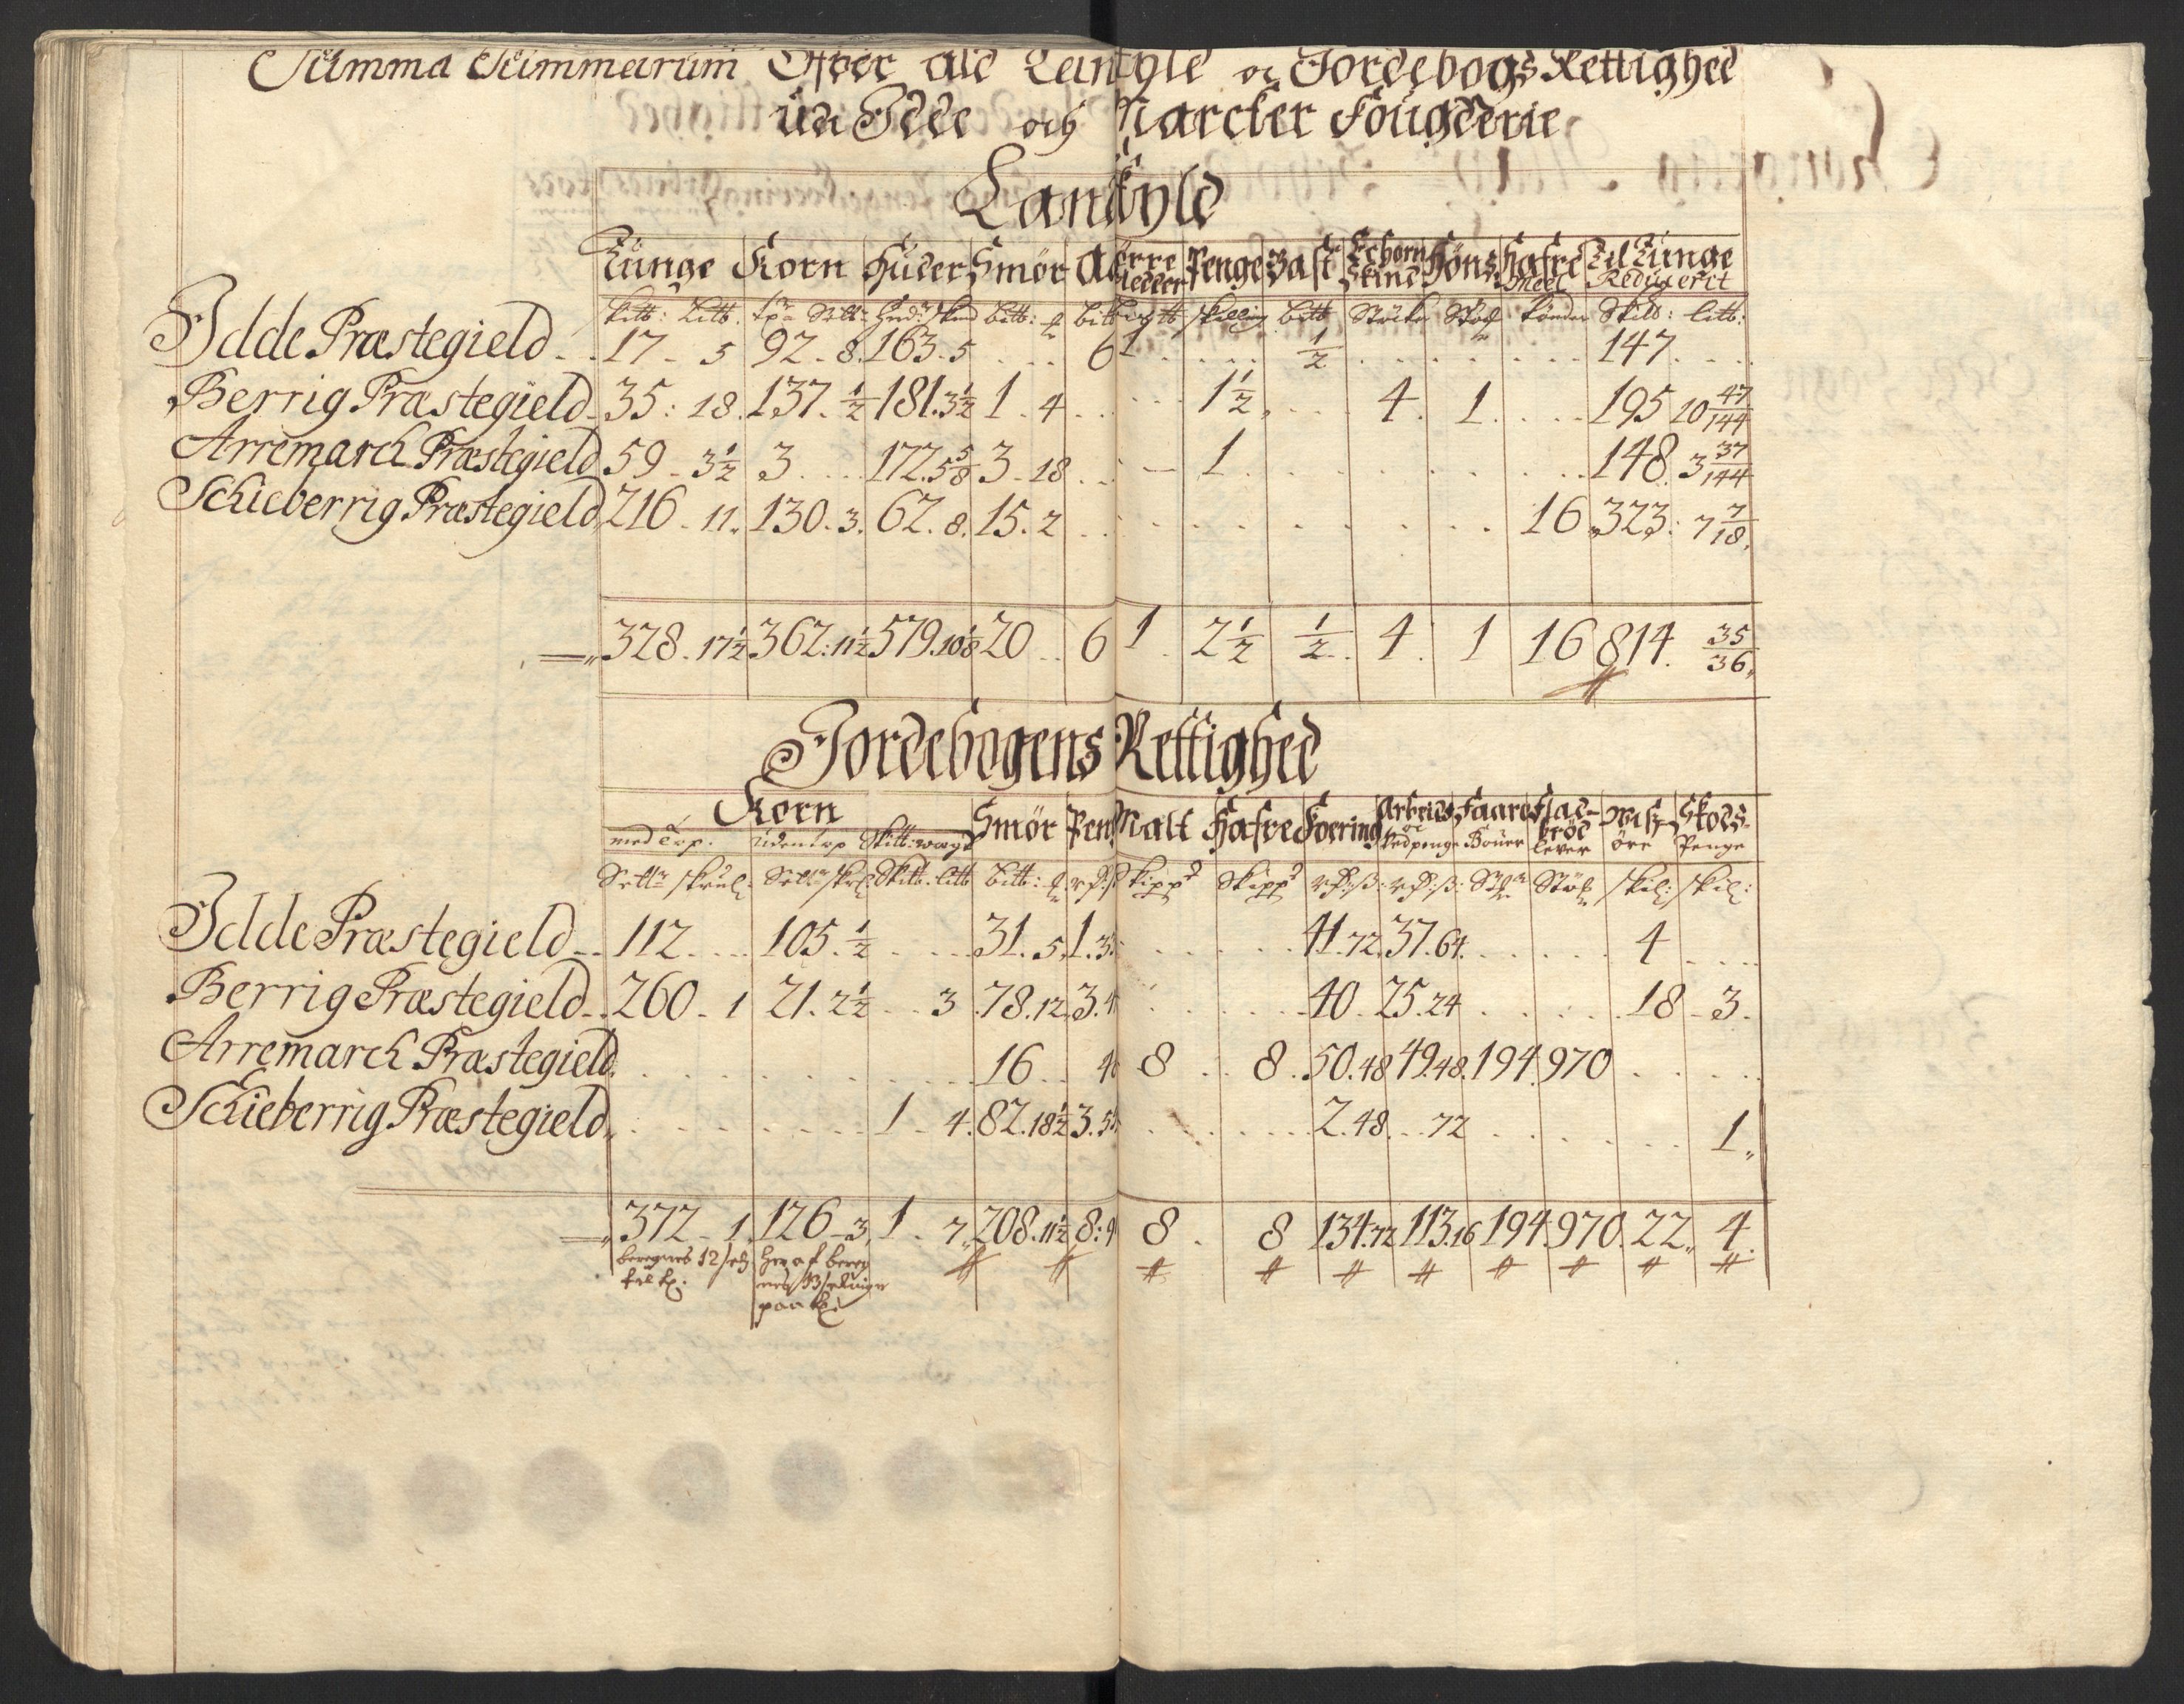 Summa Summarum Ofver ald Landtyld oc Jordebogs Rettighed
Udi Idde och Marcker Fougderie
Landtyld
Tunge Korn Huder Smör Penge Bast Echorn Skind Höns Hafre Meel Til Tunge Reduxerit
Idde Præstegield 17 - 5 92 - 8. 163 - 5 6 1 1/2 147
Berrig Præstegield 35 : 18. 137 - 1/2 181. 3 1/2 1 - 4 1 1/2 4. 1. 195 10 47/144
Arremarch Præstegield 59 - 3 1/2 3 172. 5 5/8 3 - 18 1 148. 3 37/144
Schieberrig Præstegield 216 - 11. 130 - 3. 62 - 8. 15 - 2 16 323 : 7 7/18.
328 - 17 1/2 362 : 11 1/2 579. 10 1/8 20 6 1 2 1/2 1/2 4. 1 16 814. 35/36
Jordebogens Rettighed
Korn Smör Pen Malt Hafre Foering Arbeids oc Vedpenge Faare Bouer Flad-bröd lever Wisöre Skods-Penge
med Top. uden top Skitt: wegt
Idde Præstegield 112 105. 1/2 31. 5. 1. 3 41. 72. 37. 64. 4
Berrig Præstegield 260 - 1 21. 2 1/2 3 78. 12. 3. 4 40 - 25. 24 18 - 3.
Arremarch Præstegield 16 4 8 8. 50. 48 49. 48. 194. 970
Schieberrig Præstegield 1 - 4. 82. 18 1/2 3. 5 2. 48 72 1
372 - 1. 126 - 3. 1 - 7. 208. 11 1/2 8 : 9 8 8 134. 72. 113. 16 194. 970. 22. 4.
beregnes 12